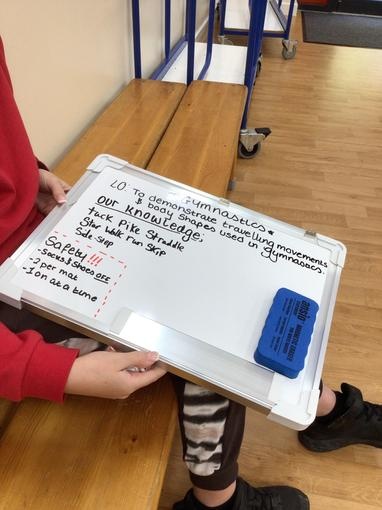 Gymnastics *
LO: To demonstrate travelling movements
& body shapes used in gymnastics.
Our Knowledge;
tuck Pike Straddle
Star Walk run Skip
Side-Step
Safety!!!
- Socks & Shoes OFF
- 2 per mat
- 1 on at a time
MAGNETIC ERASER